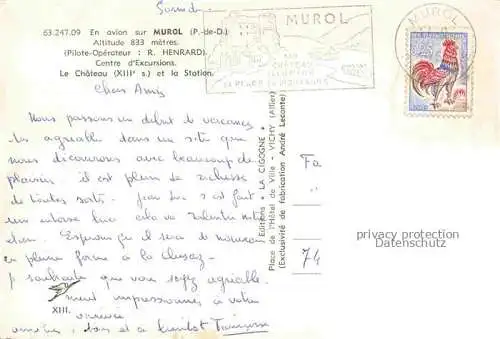 Samedi
63.247.09 En avion sur MUROL (P.-de-D.)
Altitude 833 mètres.
(Pilote-Opérateur : R. HENRARD).
Centre d'Excursions.
Le Château (XIIIe s.) et la Station.
MUROL
SON CHATEAU
SA PLAGE
MUROL
Chers Amis
Nous passons un début de vacances
très agréable dans un site que
nous découvrons avec beaucoup de
plaisir. il est plein de richesse
de toutes sortes. Jean Luc s'est fait
une entorse hier cela va ralentir notre
élan. Espérons qu'il sera de nouveau
en pleine forme à la
Je souhaite que vous soyez agréable-
ment impressionnés à votre
XIII.
arrivée
bientôt
Editions « LA CIGOGNE »
Place de l'Hôtel de Ville - VICHY (Allier)
(Exclusivité de fabrication André Leconte)
74
privacy protection
Datenschutz